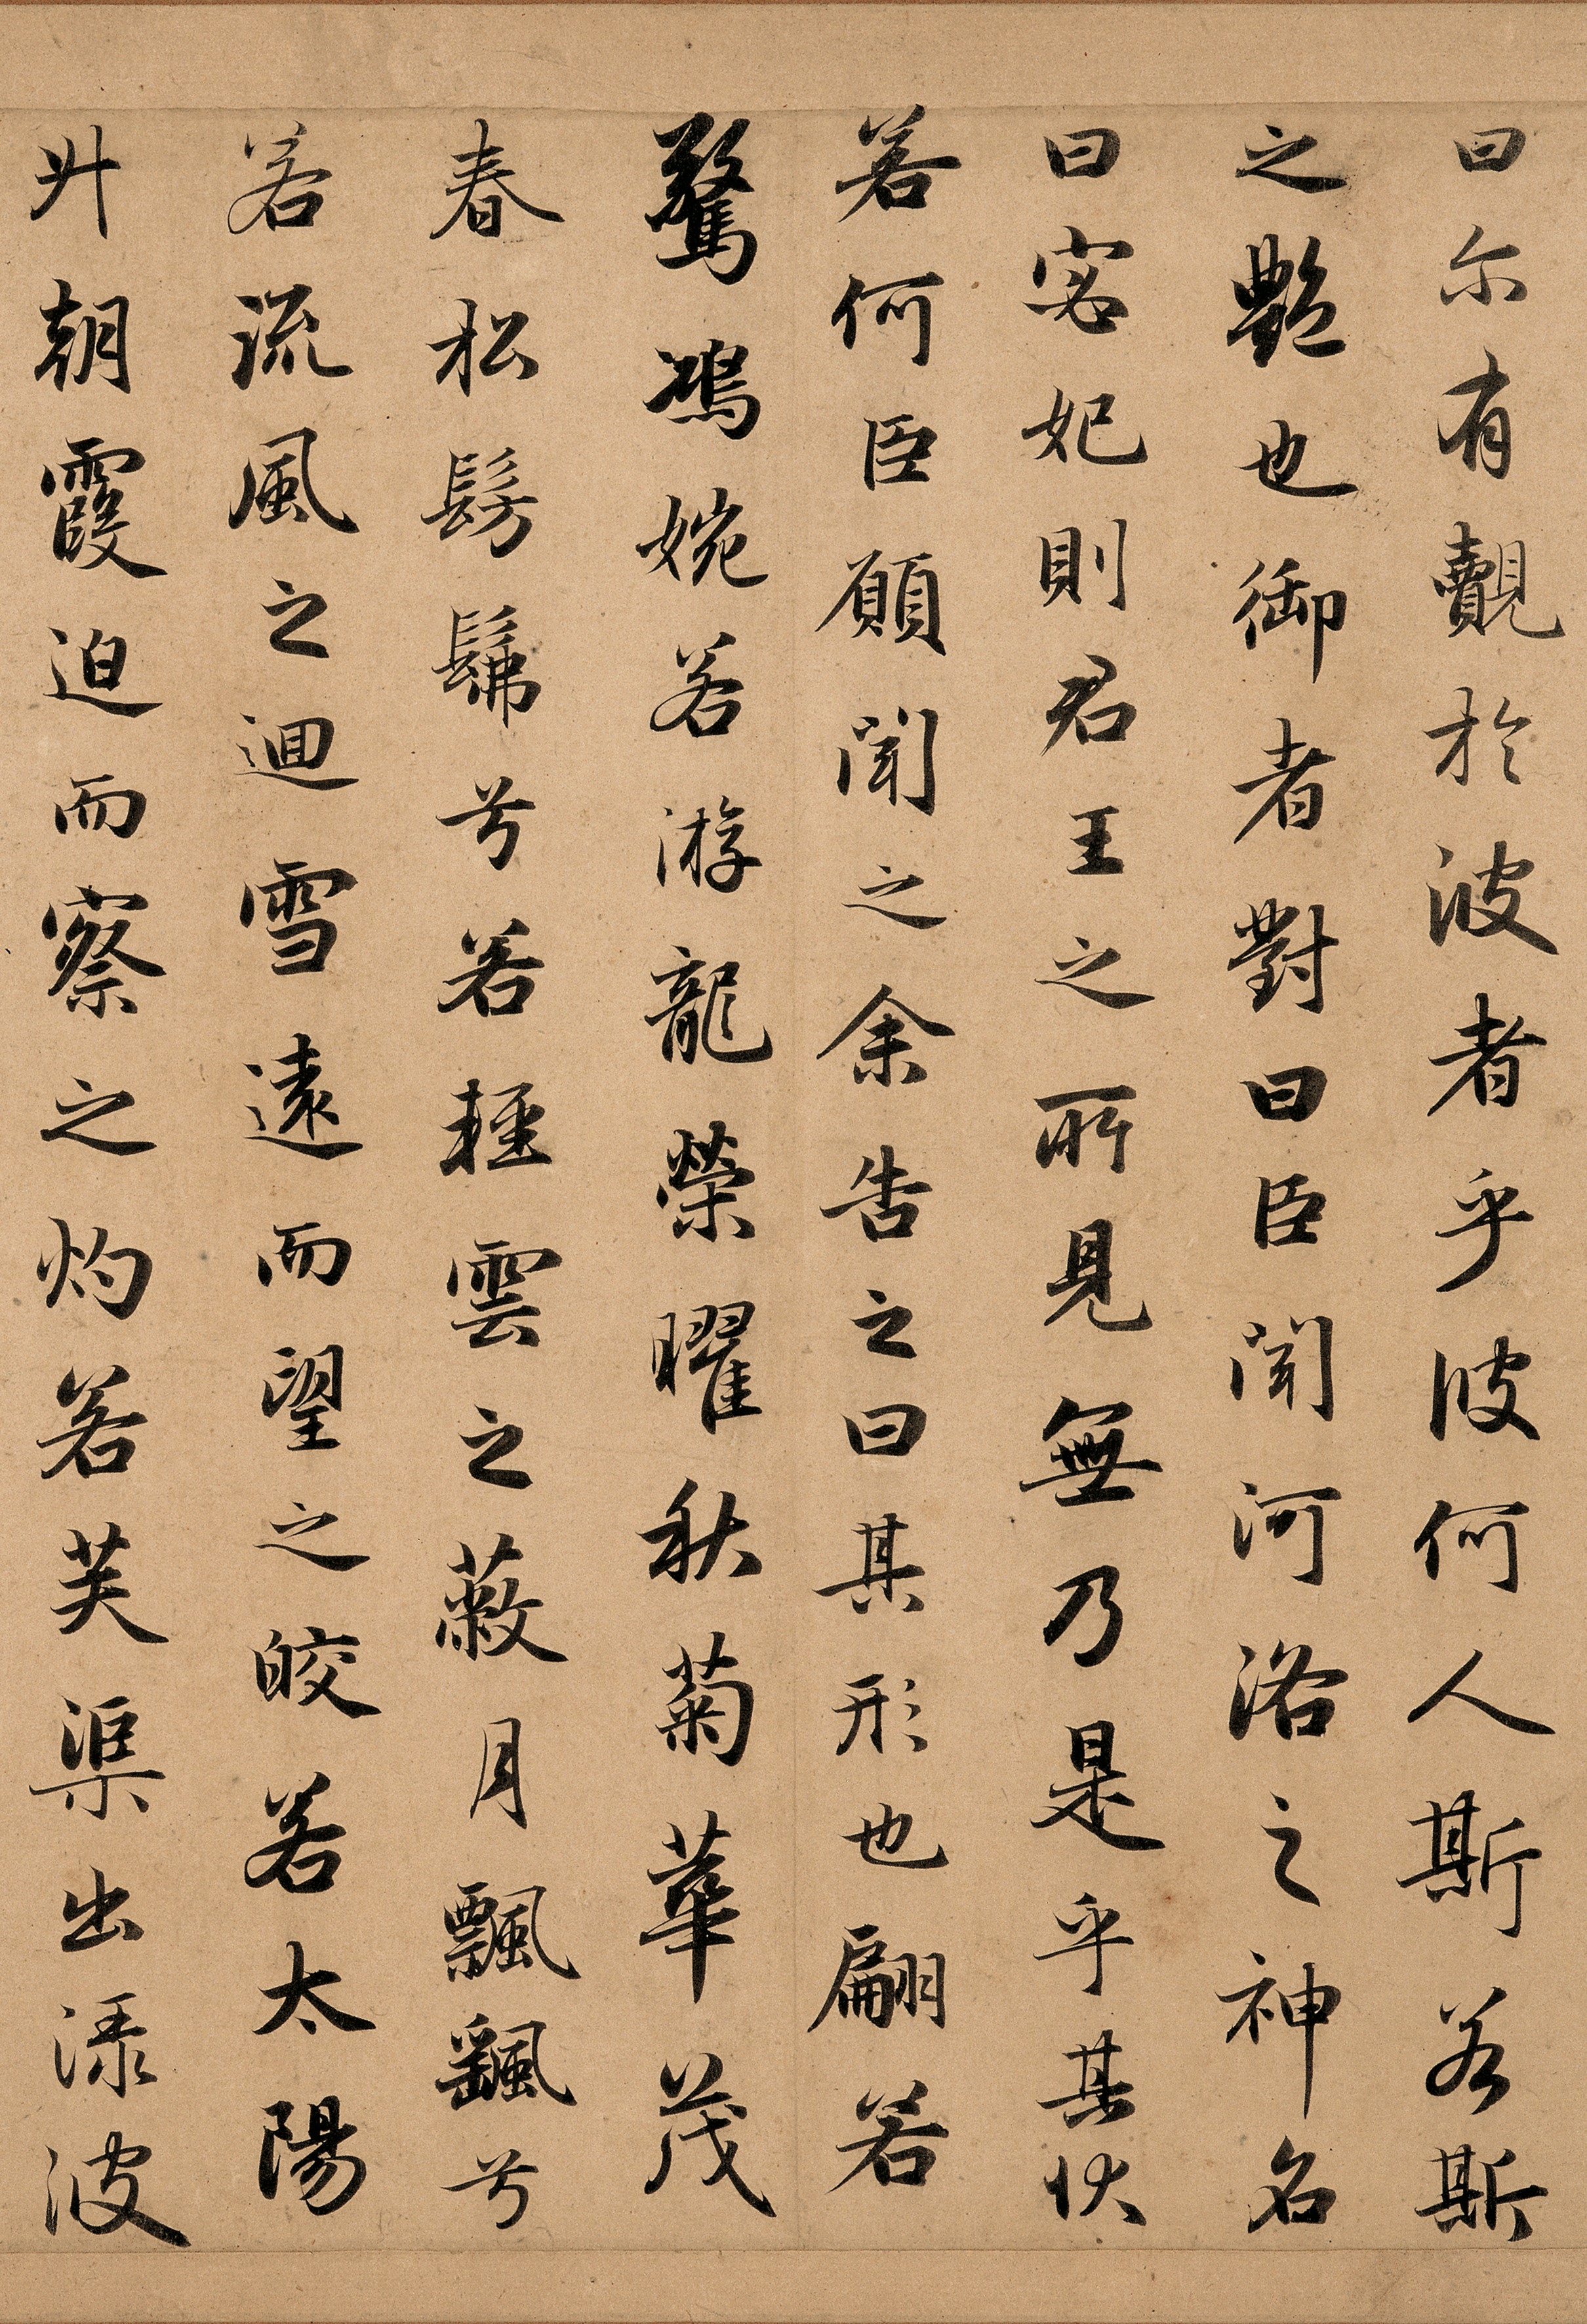 曰尓有覿於波者乎彼何人斯若斯
之艷也御者對曰臣聞河洛之神名
曰宓妃則君王之所見無乃是乎其狀
若何臣願聞之余告之曰其形也翩若
驚鴻婉若游龍榮曜秋菊華茂
春松髣髴兮若輕雲之蔽月飄颻兮
若流風之迴雪遠而望之皎若太陽
升朝霞迫而察之灼若芙渠出渌波